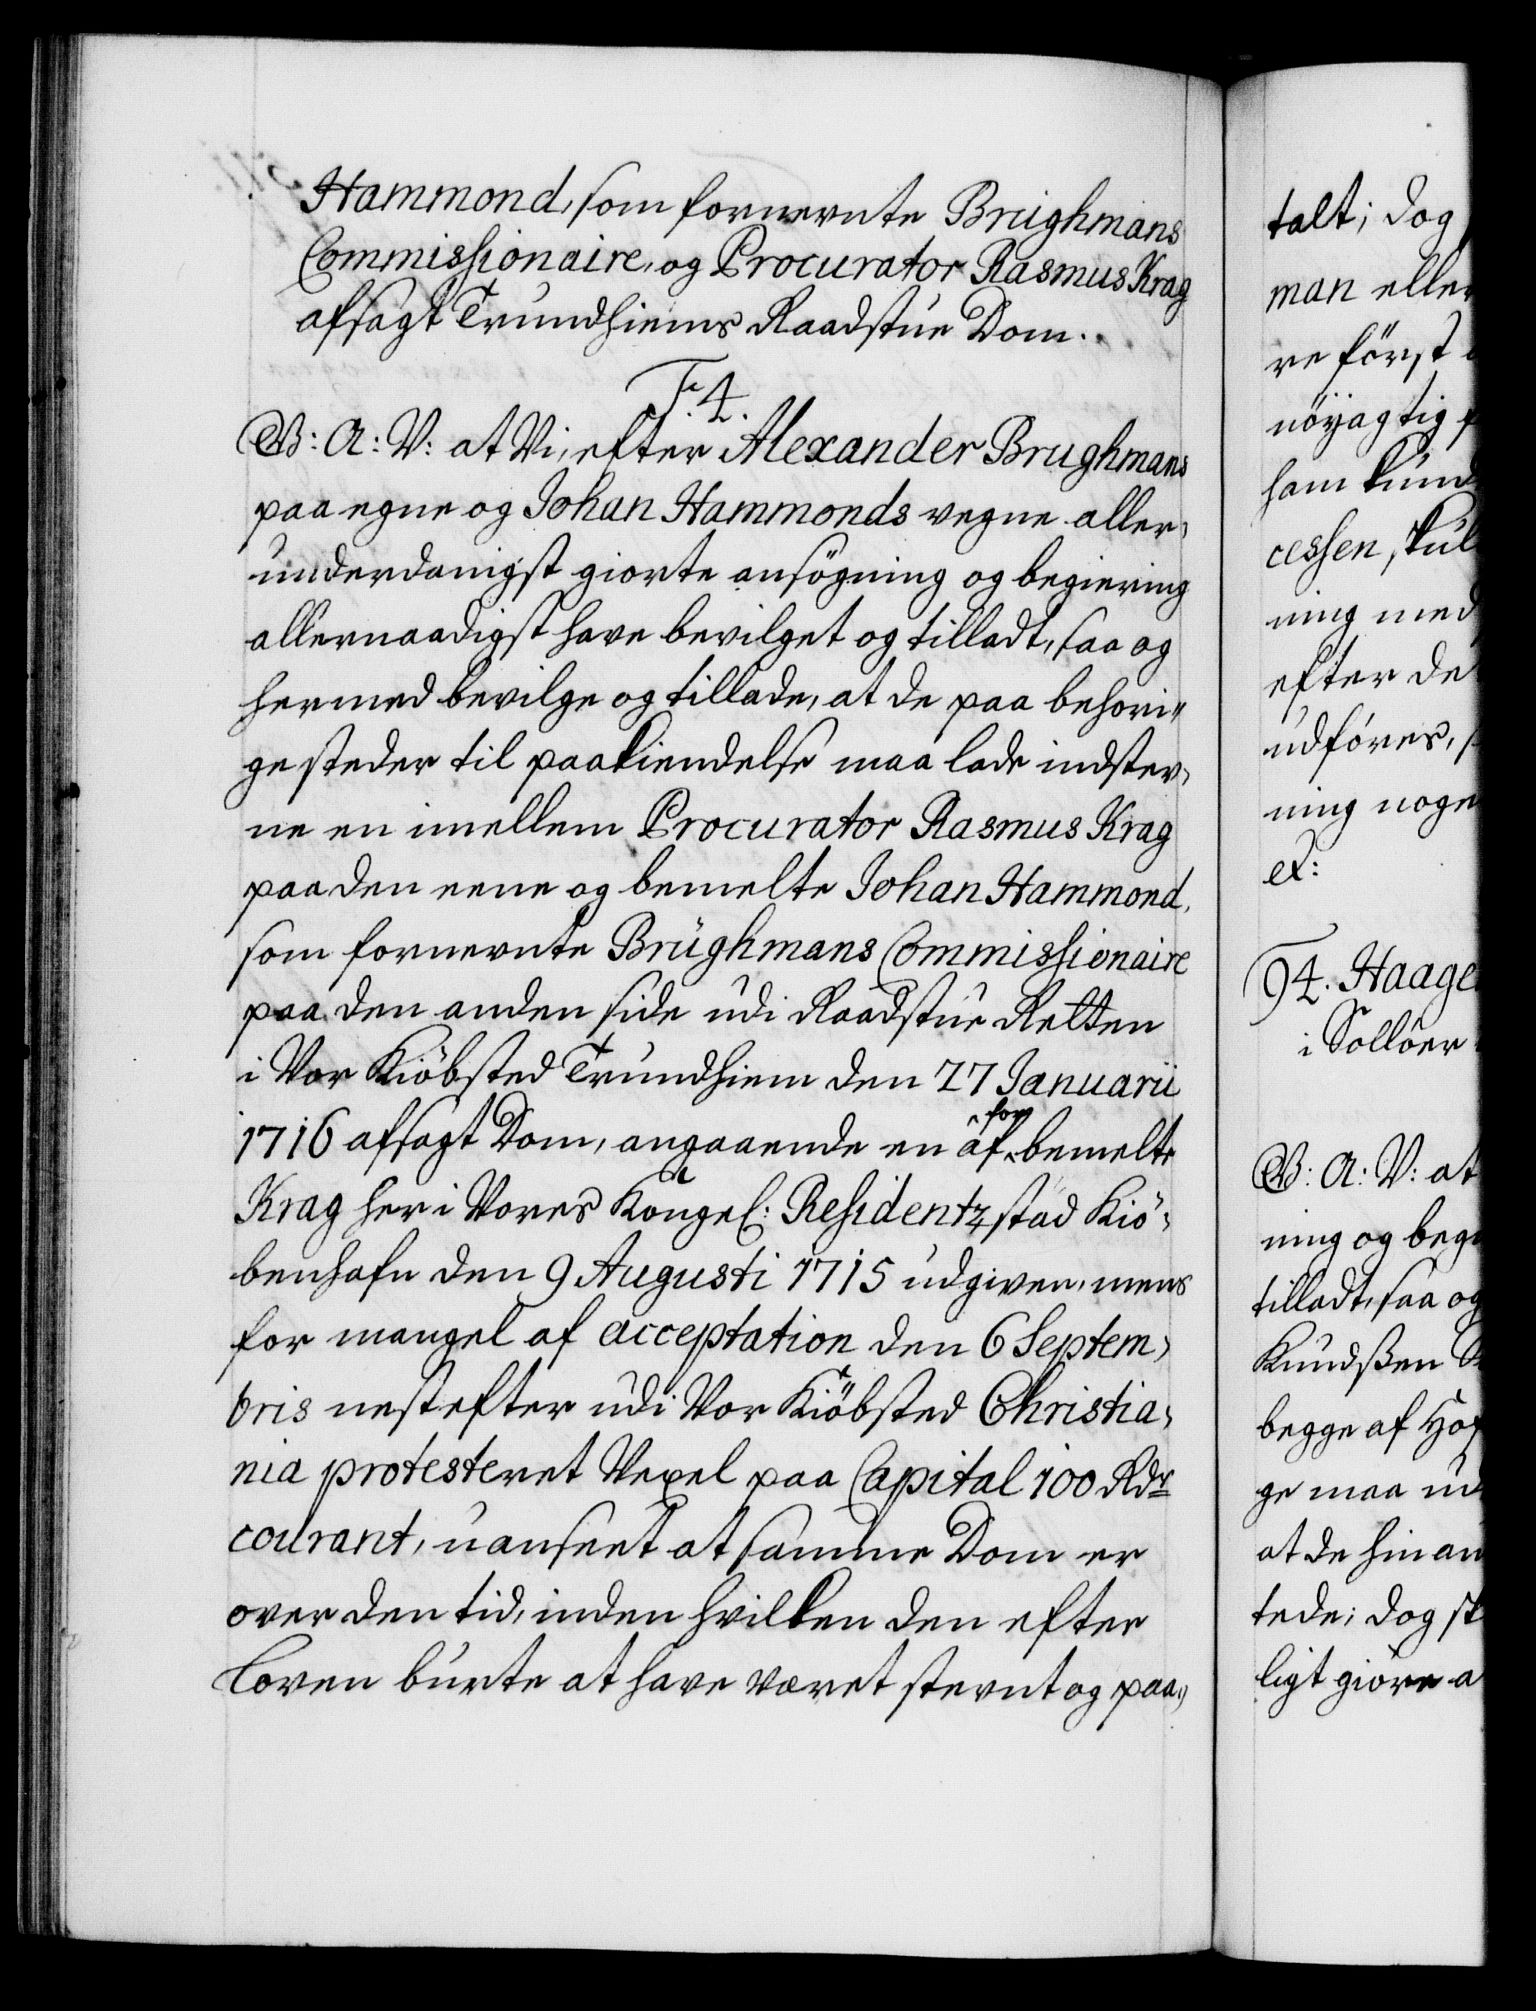 Hammond, som fornevnte Brughmans
Commissionaire, og Procurator Rasmus Krag
afsagt Trundhiems Raadstue Dom.
F. 4.
G: A: V: at Vi, efter Alexander Brughmans
paa egne og Johan Hammonds vegne aller,
underdanigst giorte ansögning og begiering
allernaadigst have bevilget og tilladt, saa og
hermed bevilge og tillade, at de paa behori„
ge steder til paakiendelse maa lade indstev,
ne en imellem Procurator Rasmus Krag
paa den eene og bemelte Johan Hammond,
som fornevnte Brüghmans Commissionaire
paa den anden side udi Raadstue Retten
i Vor Kiöbsted Trundhiem den 27 Januarii
1716 afsagt Dom, angaaende en af for bemelte
Krag her i Vores Kongel: Residentz stad Kiö,
benhafn den 9 Augusti 1715 udgiven, mens
for mangel af acceptation den 6 Septem,
bris nestefter udi Vor Kiöbsted Christia,
nia protesteret Vexel paa Capital 100 Rdr
courant, uanseet at samme Dom er
over den tid, inden hvilken den efter
Loven burte at have været stevnt og paa„
talt; dog
man eller
re först
nöyagtig
ham kund
cessen, skul
ning med
efter de
udföres,
ning noge
ex:
94. Haage
i Sollöer
G: A: V: at
ning og beg
tilladt, saa og
Kundssen
begge af Hof
ge maa ud
at de hinan
tede; dog sk
ligt giöre a